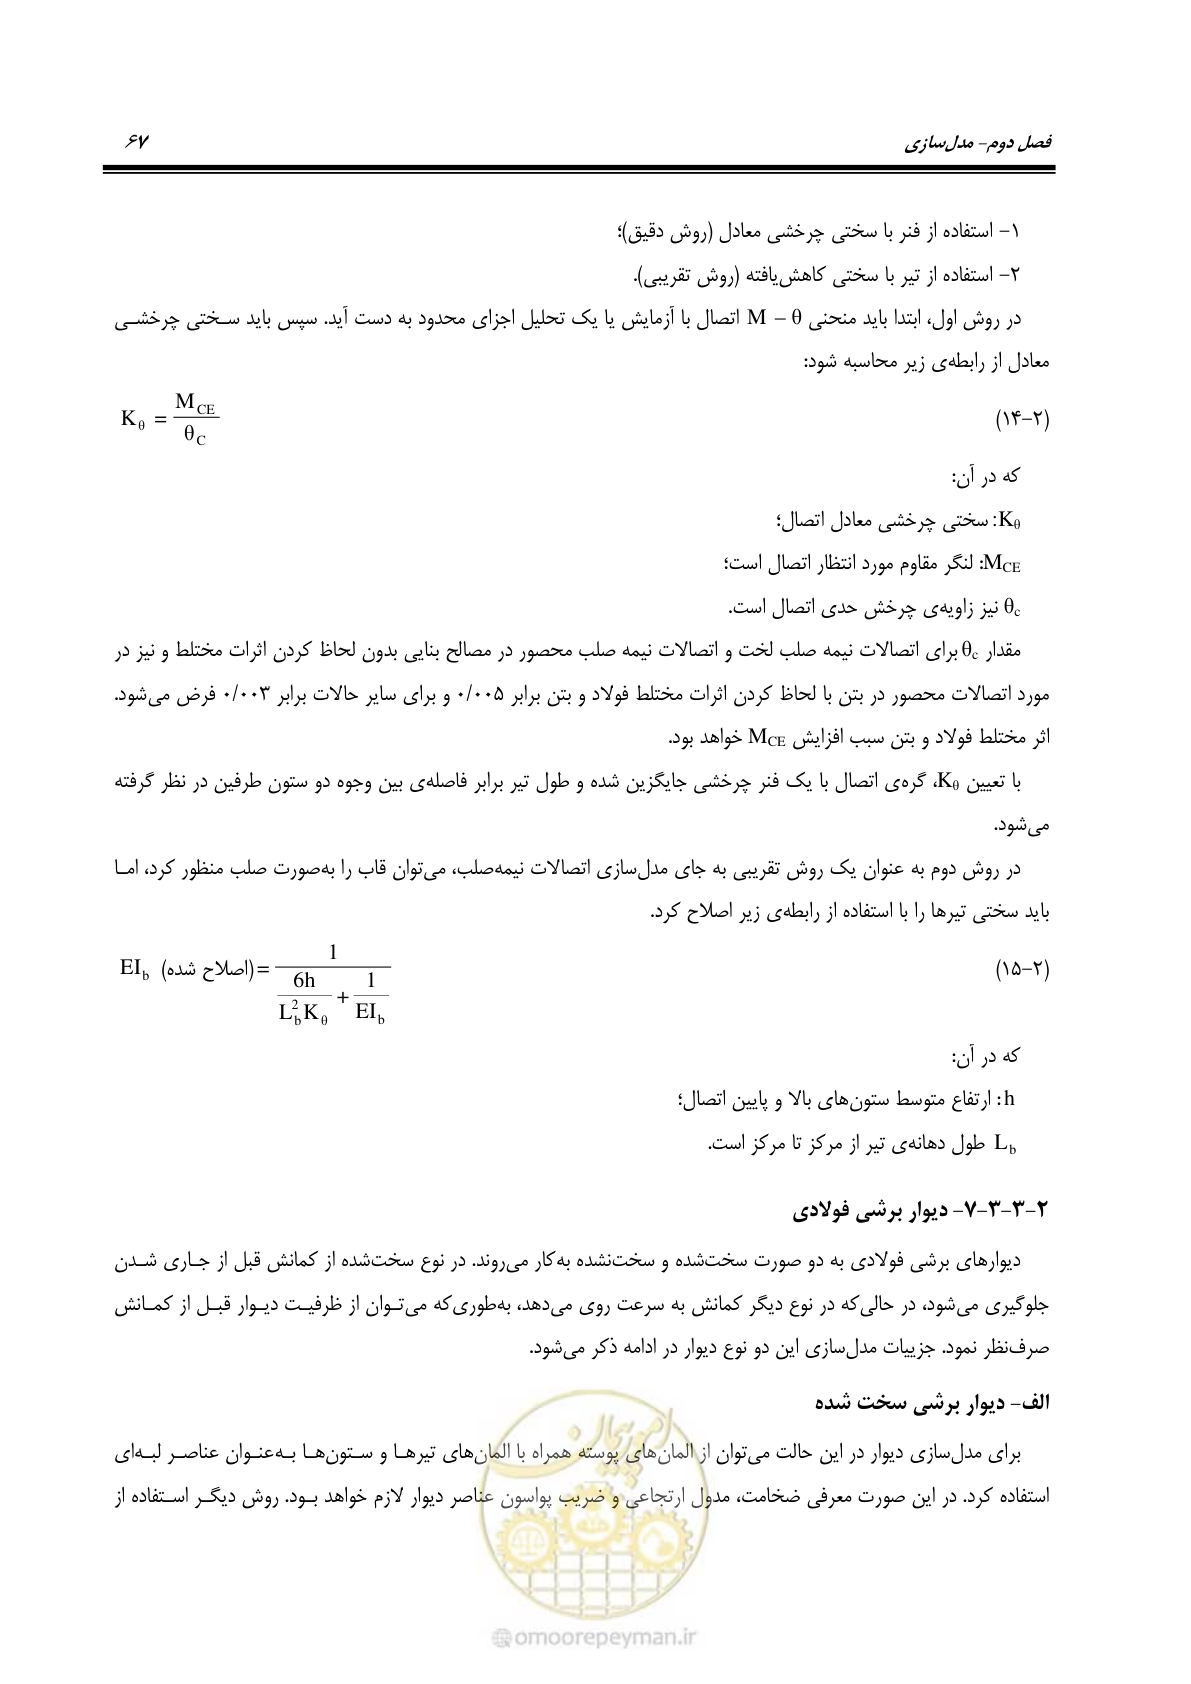 فصل دوم- مدل‌سازی ۶۷
۱- استفاده از فنر با سختی چرخشی معادل (روش دقیق)؛
۲- استفاده از تیر با سختی کاهش‌یافته (روش تقریبی).
در روش اول، ابتدا باید منحنی M – θ اتصال با آزمایش یا یک تحلیل اجزای محدود به دست آید. سپس باید سـختی چرخشـی
معادل از رابطه‌ی زیر محاسبه شود:
K_θ = M_CE / θ_C (۲-۱۴)
که در آن:
K_θ: سختی چرخشی معادل اتصال؛
M_CE: لنگر مقاوم مورد انتظار اتصال است؛
θ_c نیز زاویه‌ی چرخش حدی اتصال است.
مقدار θ_c برای اتصالات نیمه صلب لخت و اتصالات نیمه صلب محصور در مصالح بنایی بدون لحاظ کردن اثرات مختلط و نیز در
مورد اتصالات محصور در بتن با لحاظ کردن اثرات مختلط فولاد و بتن برابر ۰/۰۰۵ و برای سایر حالات برابر ۰/۰۰۳ فرض می‌شود.
اثر مختلط فولاد و بتن سبب افزایش M_CE خواهد بود.
با تعیین K_θ، گره‌ی اتصال با یک فنر چرخشی جایگزین شده و طول تیر برابر فاصله‌ی بین وجوه دو ستون طرفین در نظر گرفته
می‌شود.
در روش دوم به عنوان یک روش تقریبی به جای مدل‌سازی اتصالات نیمه‌صلب، می‌توان قاب را به‌صورت صلب منظور کرد، امـا
باید سختی تیرها را با استفاده از رابطه‌ی زیر اصلاح کرد.
EI_b (اصلاح شده) = 1 / (6h / (L_b^2 K_θ) + 1 / EI_b) (۲-۱۵)
که در آن:
h: ارتفاع متوسط ستون‌های بالا و پایین اتصال؛
L_b طول دهانه‌ی تیر از مرکز تا مرکز است.
۲-۳-۳-۷- دیوار برشی فولادی
دیوارهای برشی فولادی به دو صورت سخت‌شده و سخت‌نشده به‌کار می‌روند. در نوع سخت‌شده از کمانش قبل از جـاری شـدن
جلوگیری می‌شود، در حالی‌که در نوع دیگر کمانش به سرعت روی می‌دهد، به‌طوری‌که می‌تـوان از ظرفیـت دیـوار قبـل از کمـانش
صرف‌نظر نمود. جزییات مدل‌سازی این دو نوع دیوار در ادامه ذکر می‌شود.
الف- دیوار برشی سخت شده
برای مدل‌سازی دیوار در این حالت می‌توان از المان‌های پوسته همراه با المان‌های تیرهـا و سـتون‌هـا بـه‌عنـوان عناصـر لبـه‌ای
استفاده کرد. در این صورت معرفی ضخامت، مدول ارتجاعی و ضریب پواسون عناصر دیوار لازم خواهد بـود. روش دیگـر اسـتفاده از
امور پیمان
omoorepeyman.ir